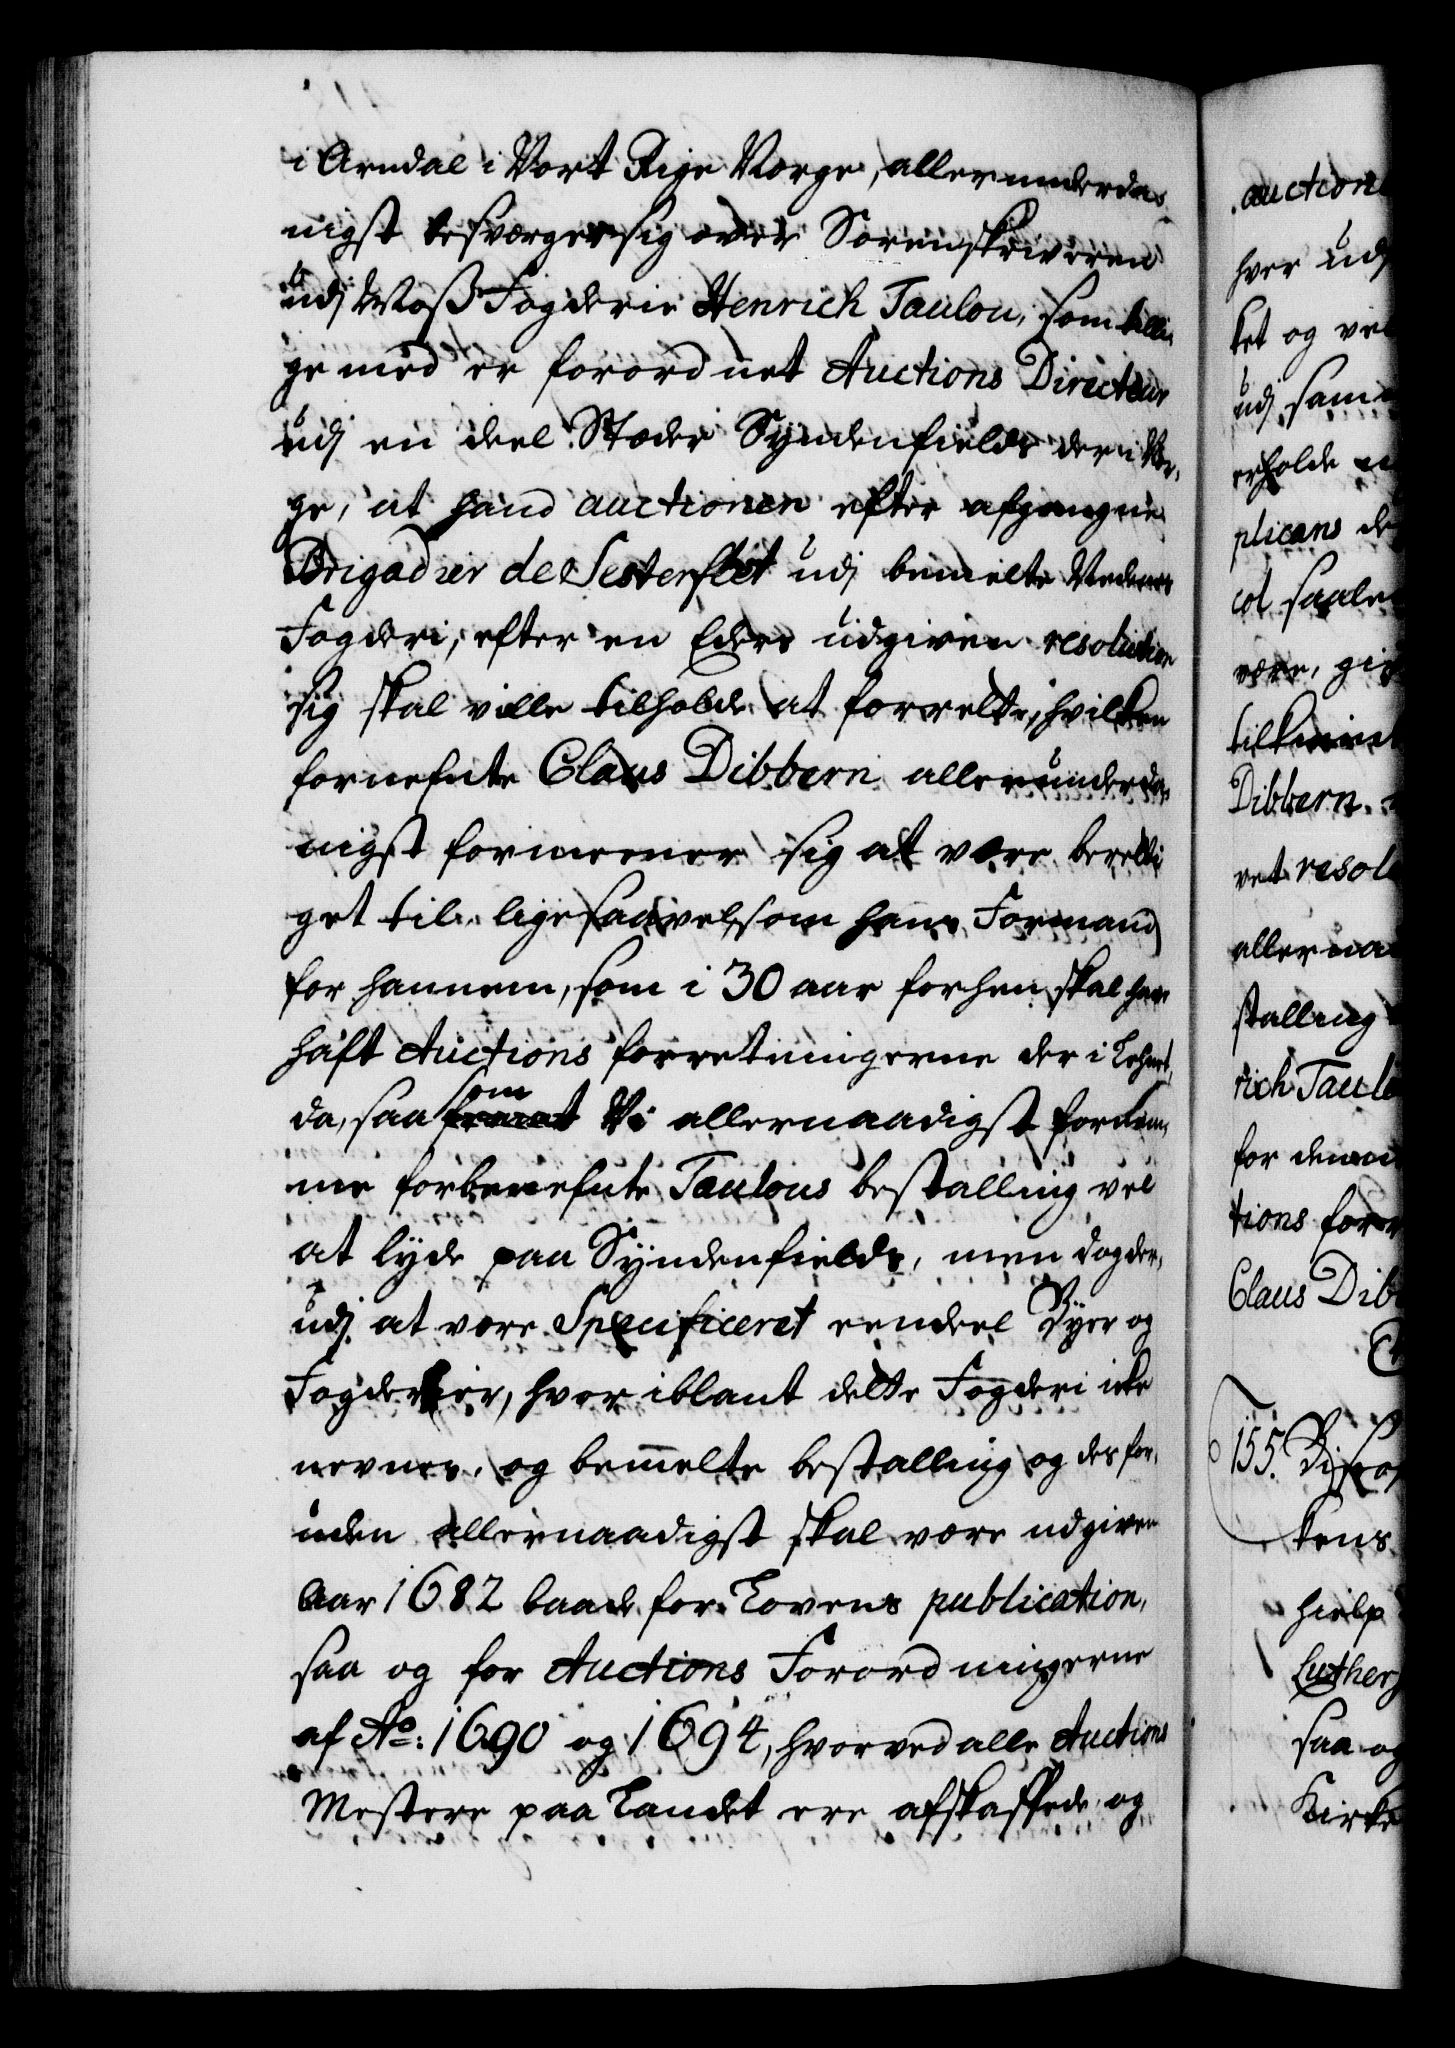 i Arndal i Vort Rige Norge, allerunderda-
nigst besværger sig over Sorenskriveren
udj Moss Fogderie Henrich Taulou, som tilli-
ge med er forordnet Auctions Directeur
udj en deel Stæder Syndenfields der i Nor-
ge, at hand auctionen efter afgangne
Brigadier de Sesterflet udj bemelte Nedenes
Fogderi, efter en Eders udgiven resolution
sig skal ville tilholde at forrette, hvilken
fornefnte Claus Dibbern allerunderda-
nigst formeener sig at være beretti-
get til, ligesaavelsom hans Formand
for hannem, som i 30 aar forhen skal have
haft Auctions forretningerne der i Lehnet,
da, saasom Vi allernaadigst fornem-
me forbenefnte Taulous bestalling vel
at lyde paa Syndenfields, men dog der-
udj at være Specificeret eendeel Byer og
Fogderier, hvor iblant dette Fogderi icke
nevnes, og bemelte bestalling og des for-
uden allernaadigst skal være udgiven
Aar 1682 baade for Lovens publication,
saa og for Auctions Forordningerne
af Ao: 1690 og 1694, hvorved alle Auctions
Mestere paa Landet ere afskaffede og
auction
hver udj
ket og vel
udj sam
erholde
plicans de
col saale
være, gif
Dibbern
vet resol
allernaa
stalling
rich Taul
for denne
tions forr
Claus Dib
155.
kens
hielp
Luther
saa og
Kirke